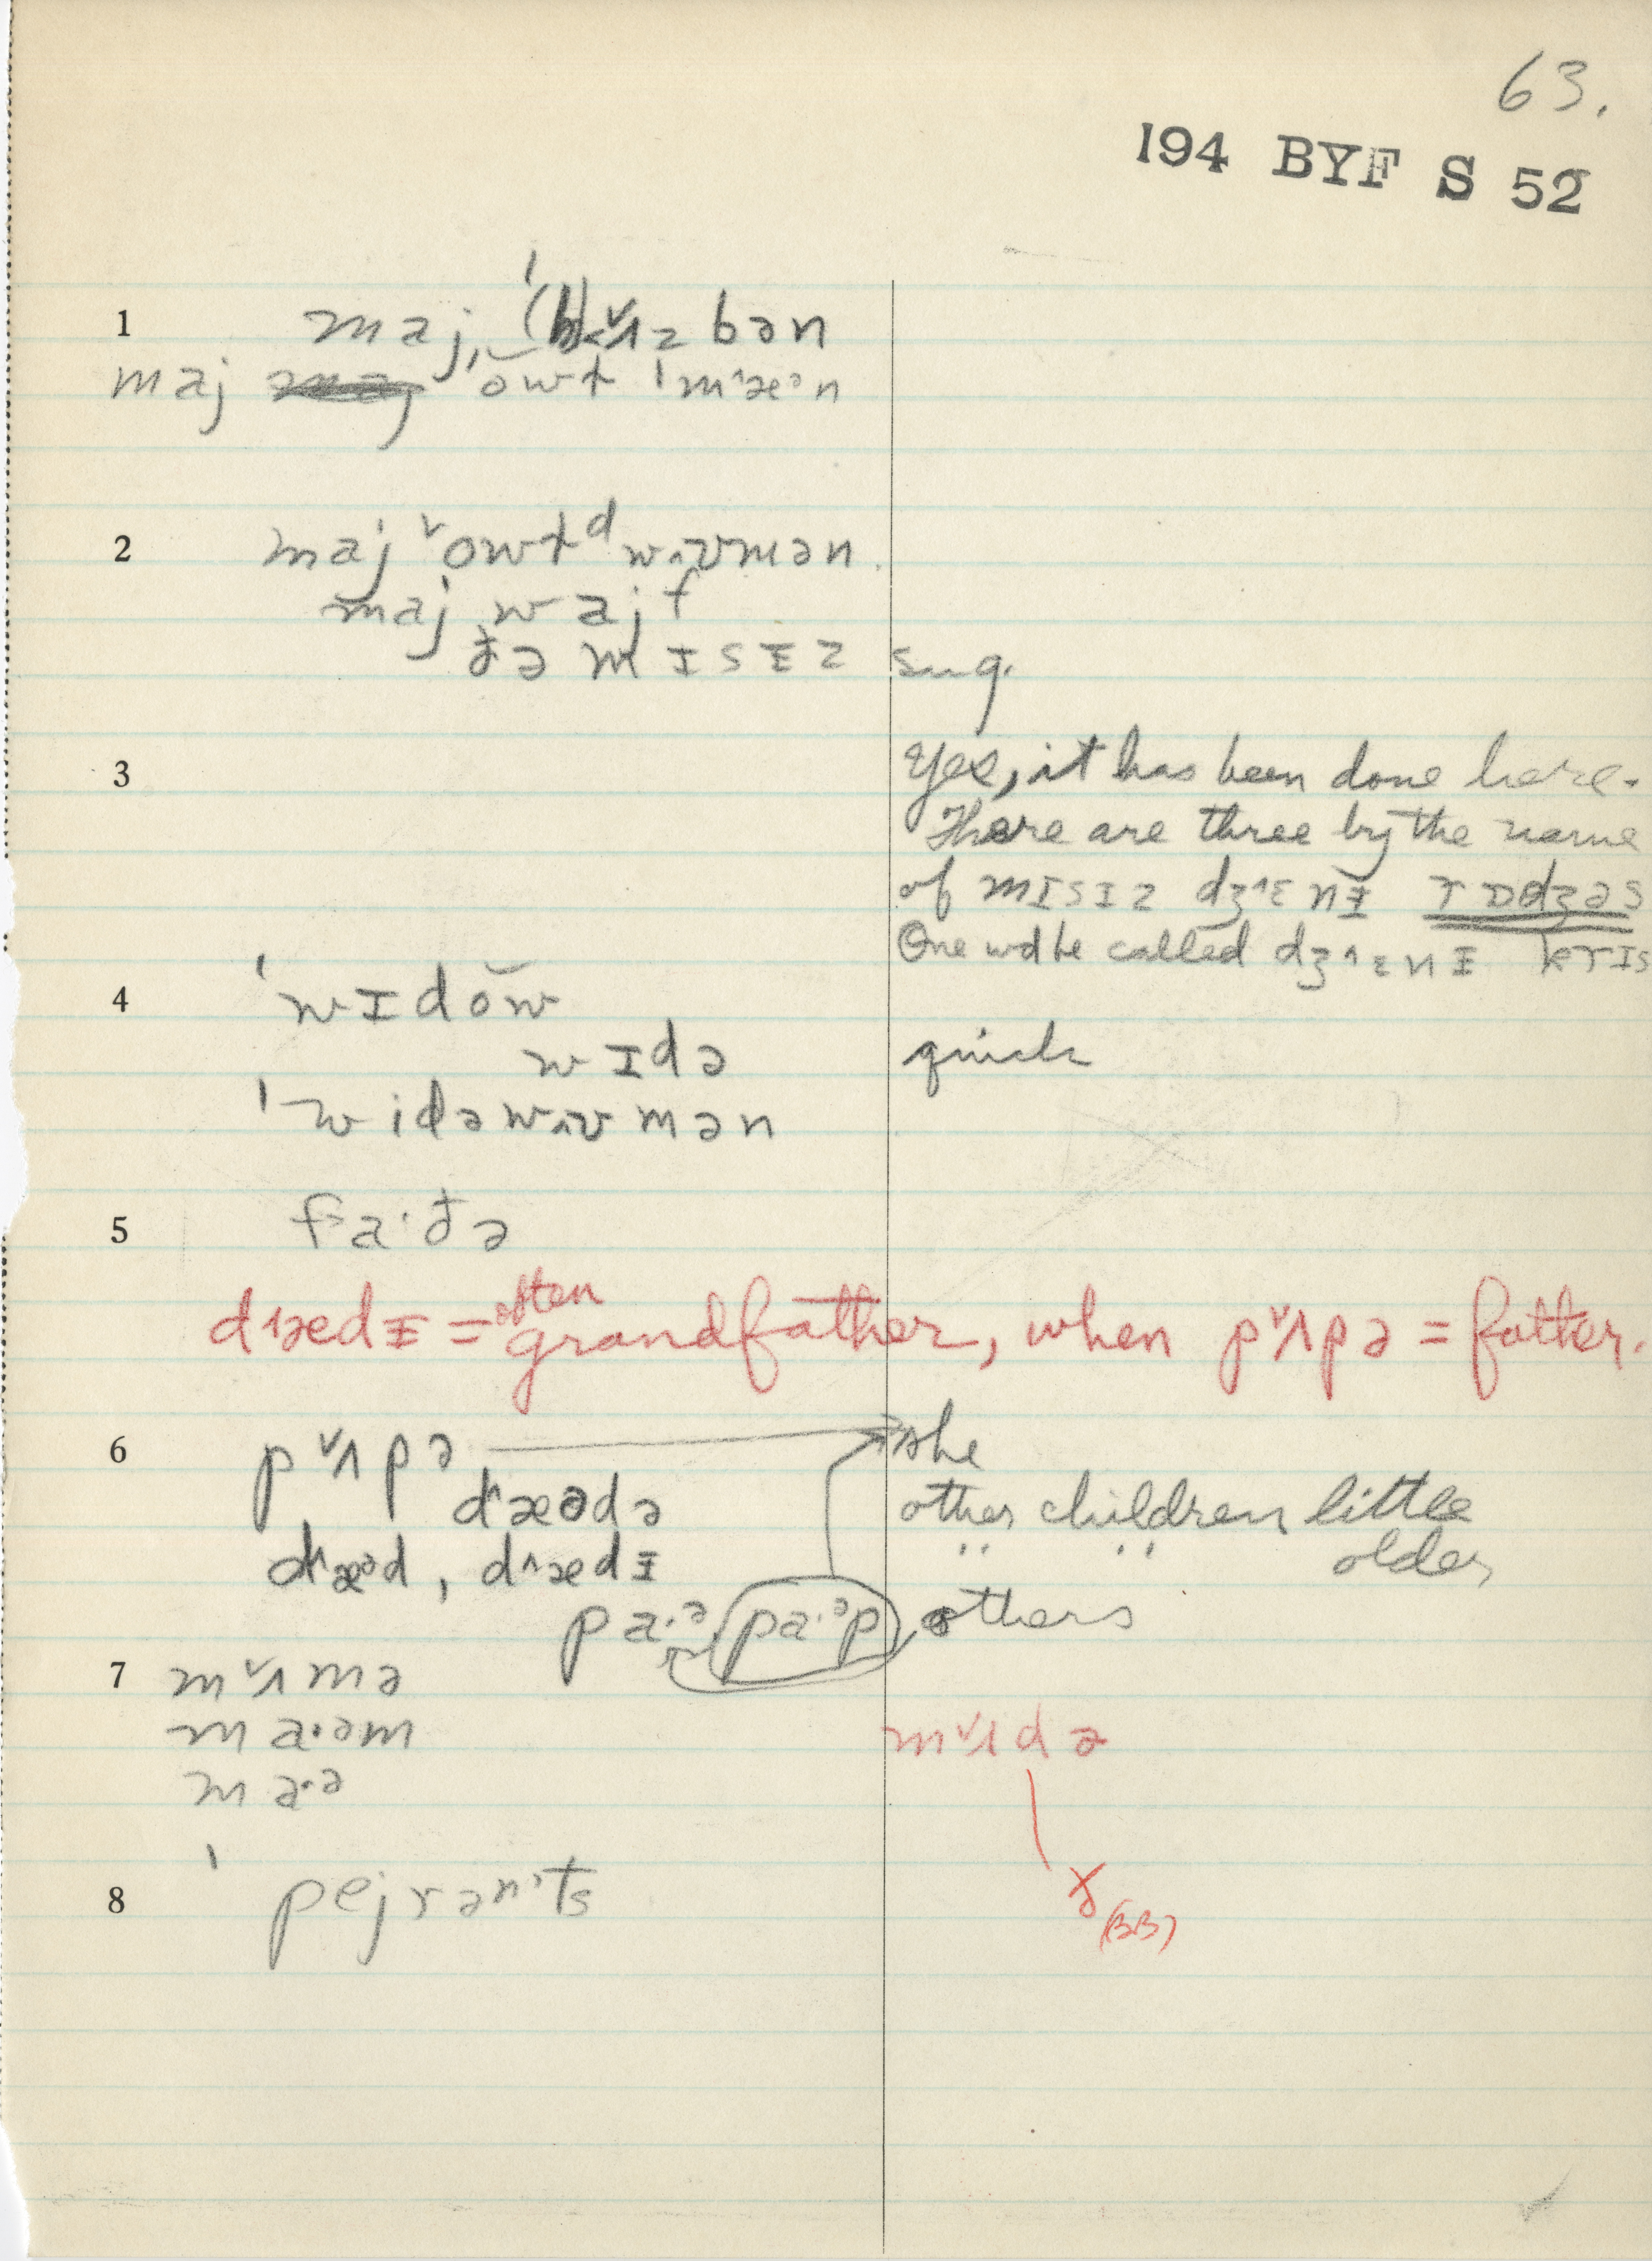 63.
194 BYF S 52
1 maj ˈ(h)ʌ˅z bən
maj owɫ ˈm˄æᵊn
2 maj ˅owɫᵈ wʌʊmən
maj wajf
ðə mɪsɪz sug.
3 Yes, it has been done here.
There are three by the name
of mɪsɪz dʒ˄ɛnɪ rɒdʒəs
One wd be called dʒ˄ɛnɪ krɪs
4 ˈwɪdŏw
wɪdə quick
ˈwidəwʌʊmən
5 fa·ðə
d˄ædɪ = often grandfather, when p˅ʌpə = father.
6 p˅ʌpə she
d˄æədə other children little
d˄æᵊd, d˄ædɪ " " older
pa·ᵊ pa·ᵊp others
7 m˅ʌmə
ma·əm m˅ʌdə
ma·ᵊ
ð (BB)
8 ˈpejrən'ts